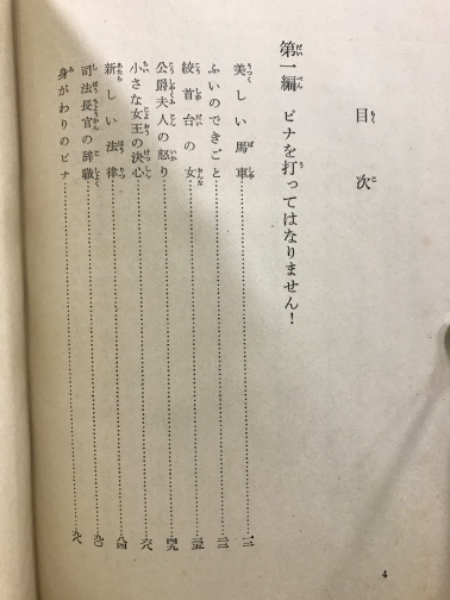 目次
第一編 ピナを打ってはなりません!
美しい馬車……一二
ふいのできごと……二三
絞首台の女……三五
公爵夫人の怒り……四九
小さな女王の決心……六六
新しい法律……八四
司法長官の辞職……九〇
身がわりのピナ……九八
4